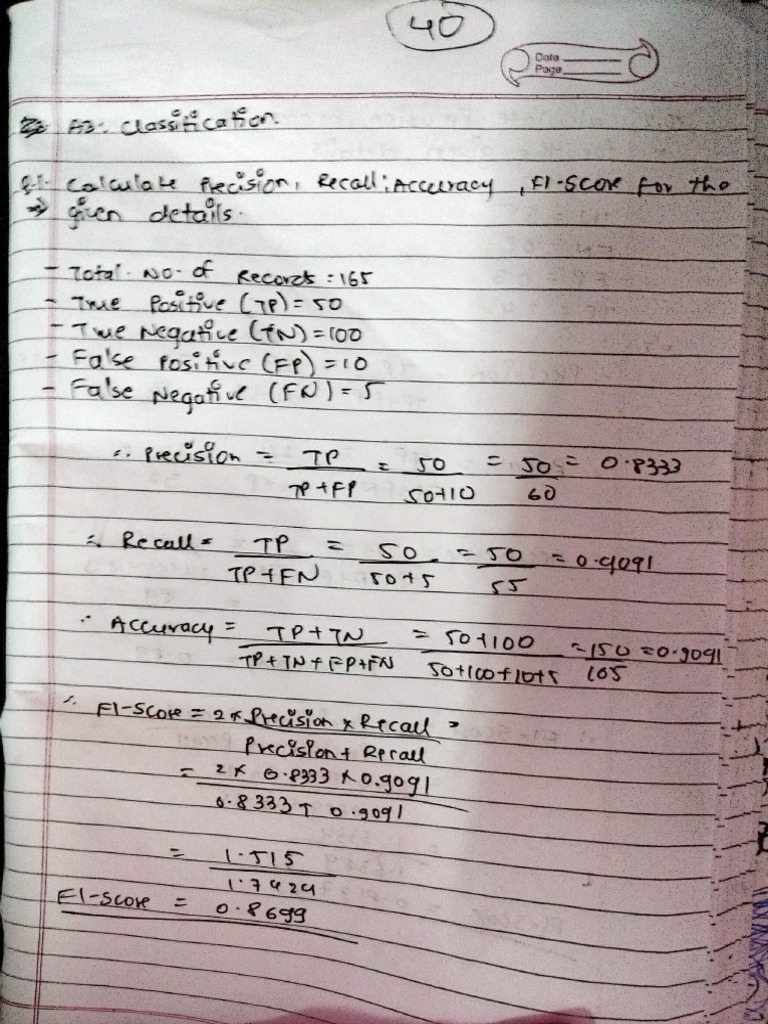 40
Date
Page
A3: Classification.
Q.1. Calculate Precision, Recall, Accuracy, F1-Score for the
⇒ given details.
- Total. No. of Records : 165
- True Positive (TP) = 50
- True Negative (TN) = 100
- False Positive (FP) = 10
- False Negative (FN) = 5
∴ Precision = TP / TP + FP = 50 / 50+10 = 50 / 60 = 0.8333
∴ Recall = TP / TP + FN = 50 / 50+5 = 50 / 55 = 0.9091
∴ Accuracy = TP + TN / TP + TN + FP + FN = 50+100 / 50+100+10+5 = 150 / 165 = 0.9091
∴ F1-Score = 2 × Precision × Recall / Precision + Recall =
= 2 × 0.8333 × 0.9091 / 0.8333 + 0.9091
= 1.515 / 1.7424
F1-Score = 0.8699